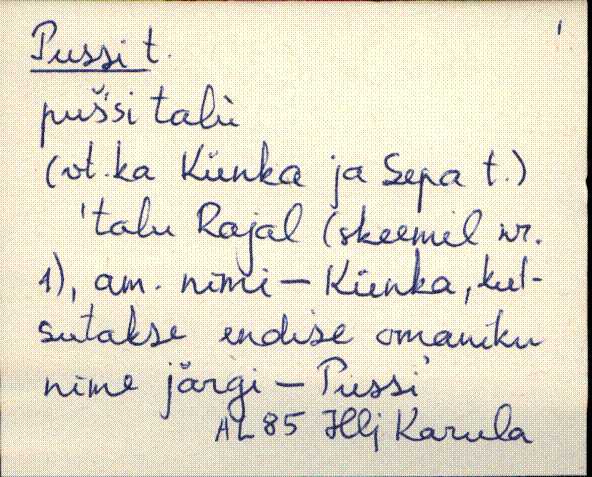 Pussi t.
puš'si talù
(vt. ka Künka ja Sepa t.)
'talu Rajal (skeemil nr.
1), am. nimi – Künka, kut-
sutakse endise omaniku
nime järgi – Pussi'
AL 85 Hlj Karula